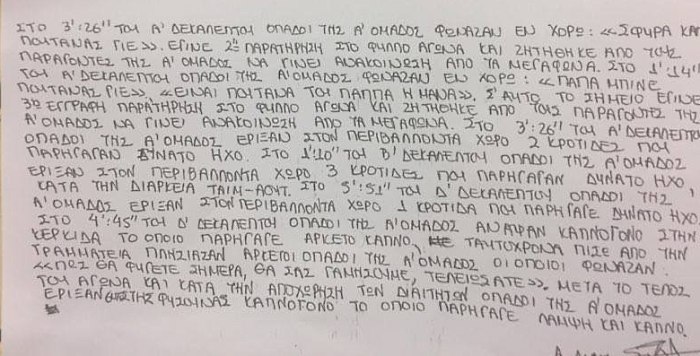 ΣΤΟ 3':26'' ΤΟΥ Α' ΔΕΚΑΛΕΠΤΟΥ ΟΠΑΔΟΙ ΤΗΣ Α' ΟΜΑΔΟΣ ΦΩΝΑΖΑΝ ΕΝ ΧΟΡΩ: «ΣΦΥΡΑ ΚΑΙ
ΠΟΥΤΑΝΑΣ ΓΙΕ». ΕΓΙΝΕ 2η ΠΑΡΑΤΗΡΗΣΗ ΣΤΟ ΦΥΛΛΟ ΑΓΩΝΑ ΚΑΙ ΖΗΤΗΘΗΚΕ ΑΠΟ ΤΟΥΣ
ΠΑΡΑΓΟΝΤΕΣ ΤΗΣ Α' ΟΜΑΔΟΣ ΝΑ ΓΙΝΕΙ ΑΝΑΚΟΙΝΩΣΗ ΑΠΟ ΤΑ ΜΕΓΑΦΩΝΑ. ΣΤΟ 1':14''
ΤΟΥ Α' ΔΕΚΑΛΕΠΤΟΥ ΟΠΑΔΟΙ ΤΗΣ Α' ΟΜΑΔΟΣ ΦΩΝΑΖΑΝ ΕΝ ΧΟΡΩ: «ΠΑΠΑ ΜΠΙΝΕ
ΠΟΥΤΑΝΑΣ ΓΙΕ», «ΕΙΝΑΙ ΠΟΥΤΑΝΑ ΤΟΥ ΠΑΠΠΑ Η ΜΑΝΑ». Σ' ΑΥΤΟ ΤΟ ΣΗΜΕΙΟ ΕΓΙΝΕ
3η ΕΓΓΡΑΦΗ ΠΑΡΑΤΗΡΗΣΗ ΣΤΟ ΦΥΛΛΟ ΑΓΩΝΑ ΚΑΙ ΖΗΤΗΘΗΚΕ ΑΠΟ ΤΟΥΣ ΠΑΡΑΓΟΝΤΕΣ ΤΗΣ
Α' ΟΜΑΔΟΣ ΝΑ ΓΙΝΕΙ ΑΝΑΚΟΙΝΩΣΗ ΑΠΟ ΤΑ ΜΕΓΑΦΩΝΑ. ΣΤΟ 3':26'' ΤΟΥ Α' ΔΕΚΑΛΕΠΤΟΥ
ΟΠΑΔΟΙ ΤΗΣ Α' ΟΜΑΔΟΣ ΕΡΙΞΑΝ ΣΤΟΝ ΠΕΡΙΒΑΛΛΟΝΤΑ ΧΩΡΟ 2 ΚΡΟΤΙΔΕΣ ΠΟΥ
ΠΑΡΗΓΑΓΑΝ ΔΥΝΑΤΟ ΗΧΟ. ΣΤΟ 1':10'' ΤΟΥ Β' ΔΕΚΑΛΕΠΤΟΥ ΟΠΑΔΟΙ ΤΗΣ Α' ΟΜΑΔΟΣ
ΕΡΙΞΑΝ ΣΤΟΝ ΠΕΡΙΒΑΛΛΟΝΤΑ ΧΩΡΟ 3 ΚΡΟΤΙΔΕΣ ΠΟΥ ΠΑΡΗΓΑΓΑΝ ΔΥΝΑΤΟ ΗΧΟ
ΚΑΤΑ ΤΗΝ ΔΙΑΡΚΕΙΑ ΤΑΙΜ-ΑΟΥΤ. ΣΤΟ 5':51'' ΤΟΥ Δ' ΔΕΚΑΛΕΠΤΟΥ ΟΠΑΔΟΙ ΤΗΣ
Α' ΟΜΑΔΟΣ ΕΡΙΞΑΝ ΣΤΟΝ ΠΕΡΙΒΑΛΛΟΝΤΑ ΧΩΡΟ 1 ΚΡΟΤΙΔΑ ΠΟΥ ΠΑΡΗΓΑΓΕ ΔΥΝΑΤΟ ΗΧΟ.
ΣΤΟ 4':45'' ΤΟΥ Δ' ΔΕΚΑΛΕΠΤΟΥ ΟΠΑΔΟΙ ΤΗΣ Α' ΟΜΑΔΟΣ ΑΝΑΨΑΝ ΚΑΠΝΟΓΟΝΟ ΣΤΗΝ
ΚΕΡΚΙΔΑ ΤΟ ΟΠΟΙΟ ΠΑΡΗΓΑΓΕ ΑΡΚΕΤΟ ΚΑΠΝΟ, ΤΑΥΤΟΧΡΟΝΑ ΠΙΣΩ ΑΠΟ ΤΗΝ
ΓΡΑΜΜΑΤΕΙΑ ΠΛΗΣΙΑΖΑΝ ΑΡΚΕΤΟΙ ΟΠΑΔΟΙ ΤΗΣ Α' ΟΜΑΔΟΣ ΟΙ ΟΠΟΙΟΙ ΦΩΝΑΖΑΝ
«ΠΩΣ ΘΑ ΦΥΓΕΤΕ ΣΗΜΕΡΑ, ΘΑ ΣΑΣ ΓΑΜΗΣΟΥΜΕ, ΤΕΛΕΙΩΣΑΤΕ». ΜΕΤΑ ΤΟ ΤΕΛΟΣ
ΤΟΥ ΑΓΩΝΑ ΚΑΙ ΚΑΤΑ ΤΗΝ ΑΠΟΧΩΡΗΣΗ ΤΩΝ ΔΙΑΙΤΗΤΩΝ ΟΠΑΔΟΙ ΤΗΣ Α' ΟΜΑΔΟΣ
ΕΡΙΞΑΝ ΤΗΣ ΦΥΣΟΥΝΑΣ ΚΑΠΝΟΓΟΝΟ ΤΟ ΟΠΟΙΟ ΠΑΡΗΓΑΓΕ ΛΑΜΨΗ ΚΑΙ ΚΑΠΝΟ.